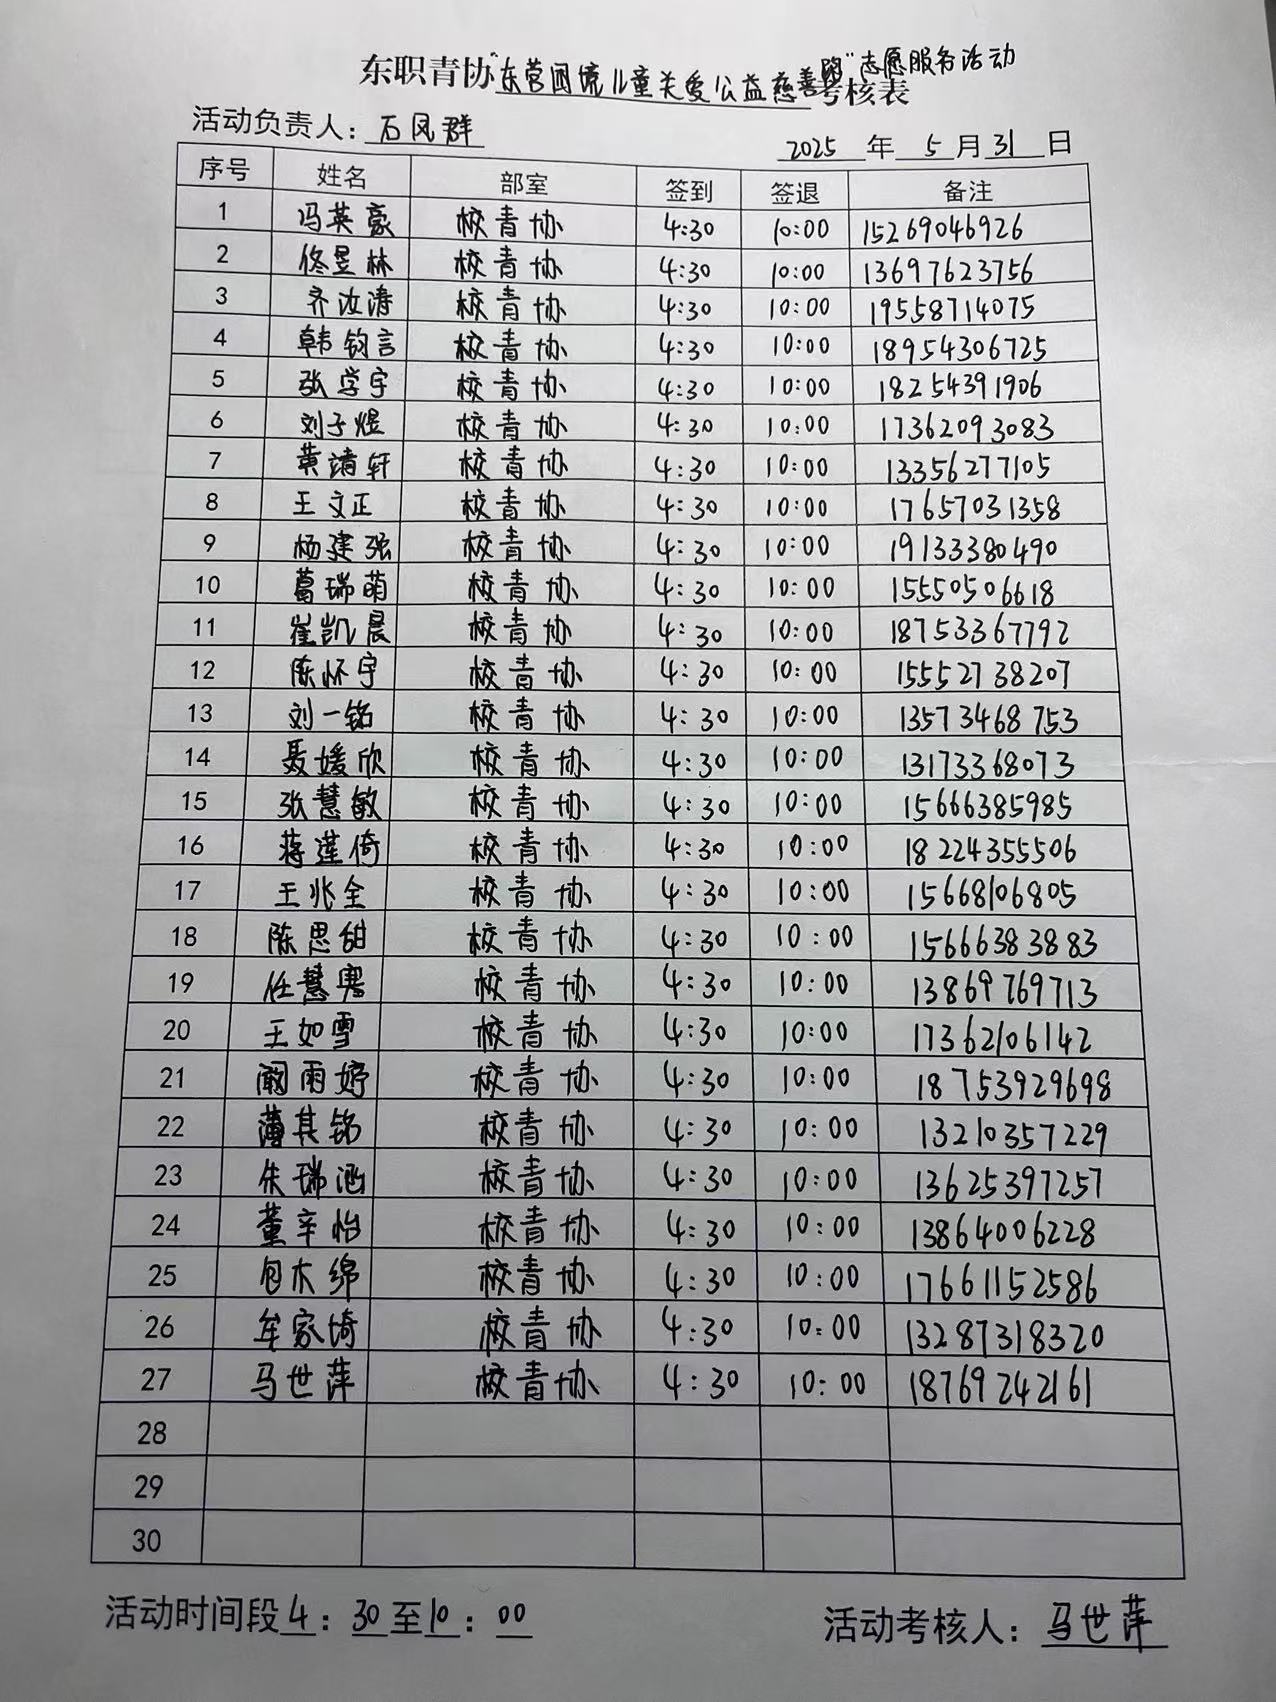 东职青协"东营困境儿童关爱公益慈善跑"志愿服务活动考核表
活动负责人：石凤群 2025年5月31日
序号 姓名 部室 签到 签退 备注
1 冯英豪 校青协 4:30 10:00 15269046926
2 佟昱林 校青协 4:30 10:00 13697623756
3 齐汝涛 校青协 4:30 10:00 19558714075
4 韩钧言 校青协 4:30 10:00 18954306725
5 张学宇 校青协 4:30 10:00 18254391906
6 刘子煜 校青协 4:30 10:00 17362093083
7 黄靖轩 校青协 4:30 10:00 13356277105
8 王文正 校青协 4:30 10:00 17657031358
9 杨建强 校青协 4:30 10:00 19133380490
10 葛瑞萌 校青协 4:30 10:00 15550506618
11 崔凯晨 校青协 4:30 10:00 18753367792
12 陈怀宇 校青协 4:30 10:00 15552738207
13 刘一铭 校青协 4:30 10:00 13573468753
14 聂媛欣 校青协 4:30 10:00 13173368073
15 张慧敏 校青协 4:30 10:00 15666385985
16 蒋莲倚 校青协 4:30 10:00 18224355506
17 王兆全 校青协 4:30 10:00 15668106805
18 陈思甜 校青协 4:30 10:00 15666383883
19 任慧 校青协 4:30 10:00 13869769713
20 王如雪 校青协 4:30 10:00 17362106142
21 雨婷 校青协 4:30 10:00 18753929698
22 薄其铭 校青协 4:30 10:00 13210357229
23 朱瑞涵 校青协 4:30 10:00 13625397257
24 董辛怡 校青协 4:30 10:00 13864006228
25 包木绵 校青协 4:30 10:00 17661152586
26 牟家琦 校青协 4:30 10:00 13287318320
27 马世萍 校青协 4:30 10:00 18769242161
28
29
30
活动时间段4：30至10：00 活动考核人：马世萍